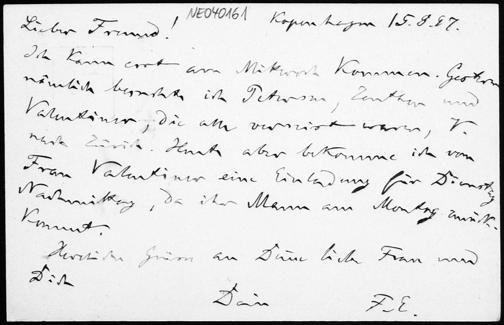 NE040161
Kopenhagen 15.8.27.
Lieber Freund!
Ich kann erst am Mittwoch kommen. Gestern
nämlich besuchte ich Petersen, Zeuthen und
Valentiner, die alle verreist waren, V.
nach Zürich. Heute aber bekomme ich von
Frau Valentiner eine Einladung für Dienstag
Nachmittag, da ihr Mann am Montag zurück-
kommt.
Herzliche Grüsse an Deine liebe Frau und
Dich
Dein
F.E.